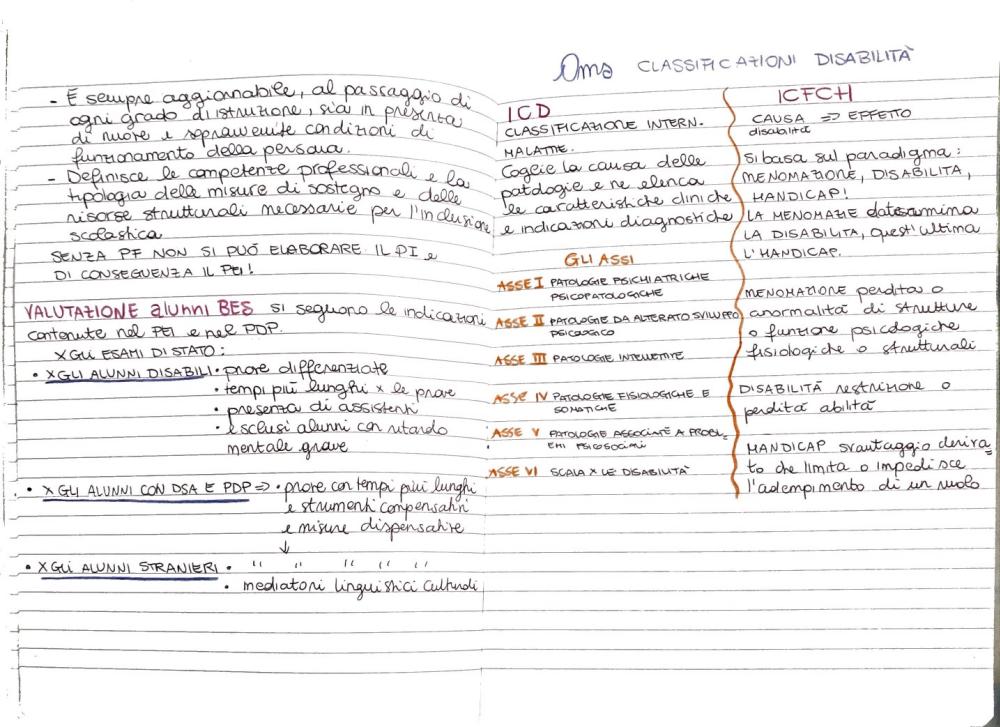 - È sempre aggiornabile, al passaggio di
ogni grado di istruzione, sia in presenza
di nuove e sopravvenute condizioni di
funzionamento della persona.
- Definisce le competenze professionali e la
tipologia delle misure di sostegno e delle
risorse strutturali necessarie per l'inclusione
scolastica
SENZA PF NON SI PUÓ ELABORARE IL PI e
DI CONSEGUENZA IL PEI!
VALUTAZIONE alunni BES si seguono le indicazioni
contenute nel PEI e nel PDP.
XGLI ESAMI DI STATO:
• XGLI ALUNNI DISABILI • prove differenziate
• tempi più lunghi x le prove
• presenza di assistenti
• esclusi alunni con ritardo
mentale grave
• XGLI ALUNNI CON DSA E PDP => • prove con tempi più lunghi
e strumenti compensativi
e misure dispensative
↓
• XGLI ALUNNI STRANIERI • " " " " "
• mediatori linguistici culturali
Oms CLASSIFICAZIONI DISABILITÀ
ICD
CLASSIFICAZIONE INTERN.
MALATTIE.
Coglie la causa delle
patologie e ne elenca
le caratteristiche cliniche
e indicazioni diagnostiche
GLI ASSI
ASSE I PATOLOGIE PSICHIATRICHE
PSICOPATOLOGICHE
ASSE II PATOLOGIE DA ALTERATO SVILUPPO
PSICOLOGICO
ASSE III PATOLOGIE INTELLETTIVE
ASSE IV PATOLOGIE FISIOLOGICHE E
SOMATICHE
ASSE V PATOLOGIE ASSOCIATE A PROBL
EMI PSICOSOCIALI
ASSE VI SCALA X LE DISABILITÀ
ICFCH
CAUSA => EFFETTO
disabilità
Si basa sul paradigma:
MENOMAZIONE, DISABILITÀ,
HANDICAP!
LA MENOMAZIE determina
LA DISABILITA, quest'ultima
L'HANDICAP.
MENOMAZIONE perdita o
anormalità di strutture
o funzione psicologiche
fisiologiche o strutturali
DISABILITÀ restrizione o
perdita abilità
HANDICAP svantaggio deriva=
to che limita o impedisce
l'adempimento di un ruolo